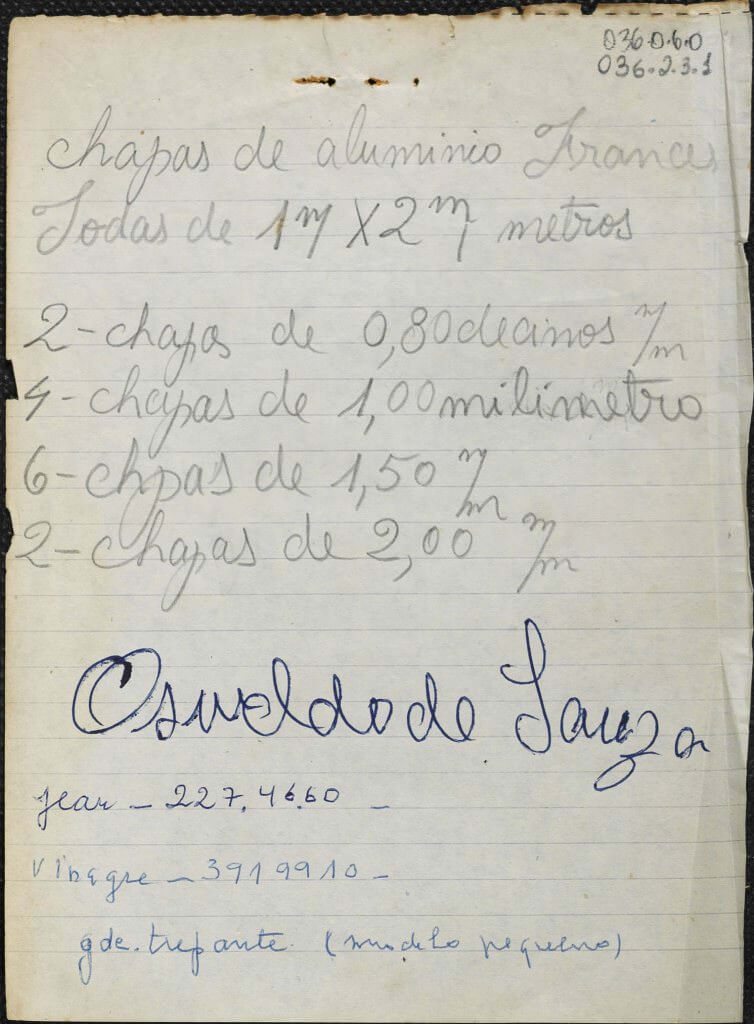 036.0.6.0
036.2.3.1
chapas de aluminio Frances
Todas de 1m X 2m metros
2-chapas de 0,80 decimos m/m
4-chapas de 1,00 milimetro
6-chpas de 1,50 m/m
2-chapas de 2,00 m/m
Osvaldo de Souza
jear - 227.46.60 -
vinagre - 3919910 -
gde. trepante (modelo pequeno)